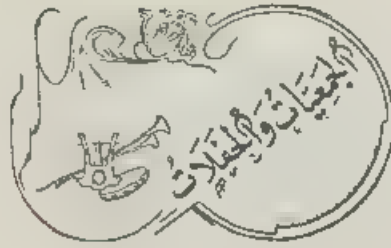 الجَمعِيَّاتُ وَالحَفَلَاتُ